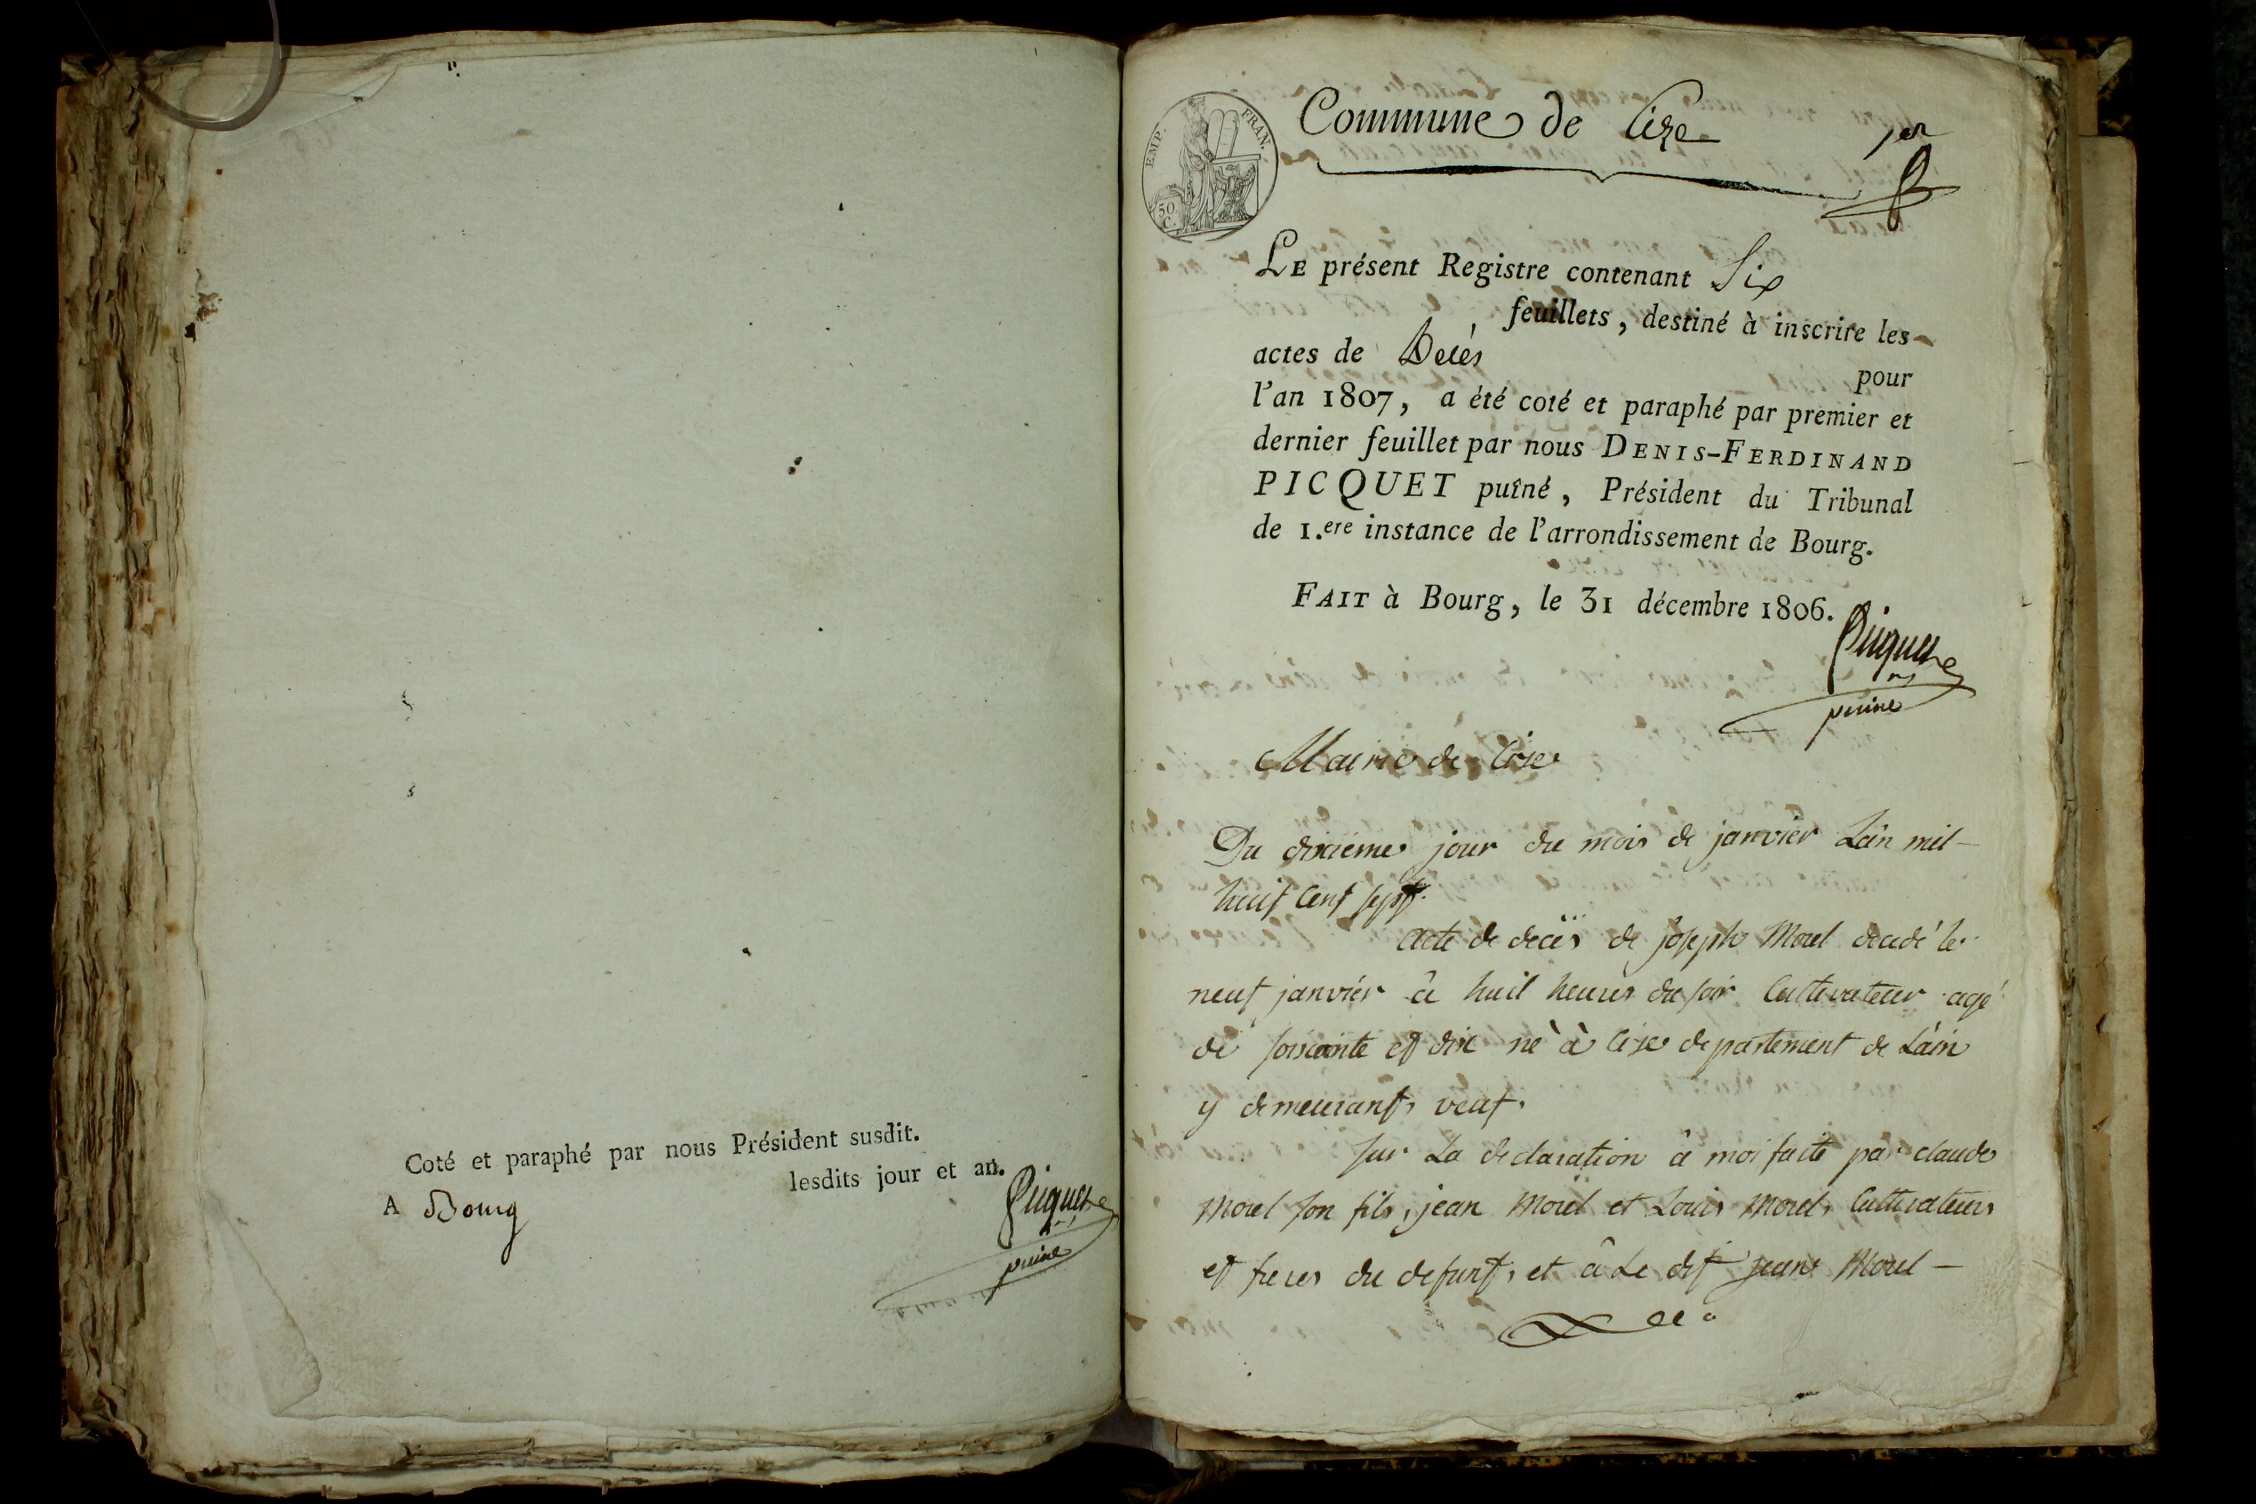 Coté et paraphé par nous Président susdit.
A Bourg lesdits jour et an.
Picquet
puiné
EMP. FRAN.
50 C.
Commune de Cize
1er
LE présent Registre contenant Six
feuillets, destiné à inscrire les
actes de Décés pour
l'an 1807, a été coté et paraphé par premier et
dernier feuillet par nous DENIS-FERDINAND
PICQUET puîné, Président du Tribunal
de 1.ere instance de l'arrondissement de Bourg.
FAIT à Bourg, le 31 décembre 1806.
Picquet
puiné
Mairie de Cize
Du dixieme jour du mois de janvier Lan mil
huit Cent sept.
acte de decès de joseph Morel decedé le
neuf janvier à huit heures du soir Cultivateur agé
de soixante et dix nè à Cize departement de Lain
y demeurant, veuf.
sur La declaration à moi faite par claude
Morel son fils, jean Morel et Louis Morel, Cultivateurs
et freres du defunt, et à Le dit jean Morel